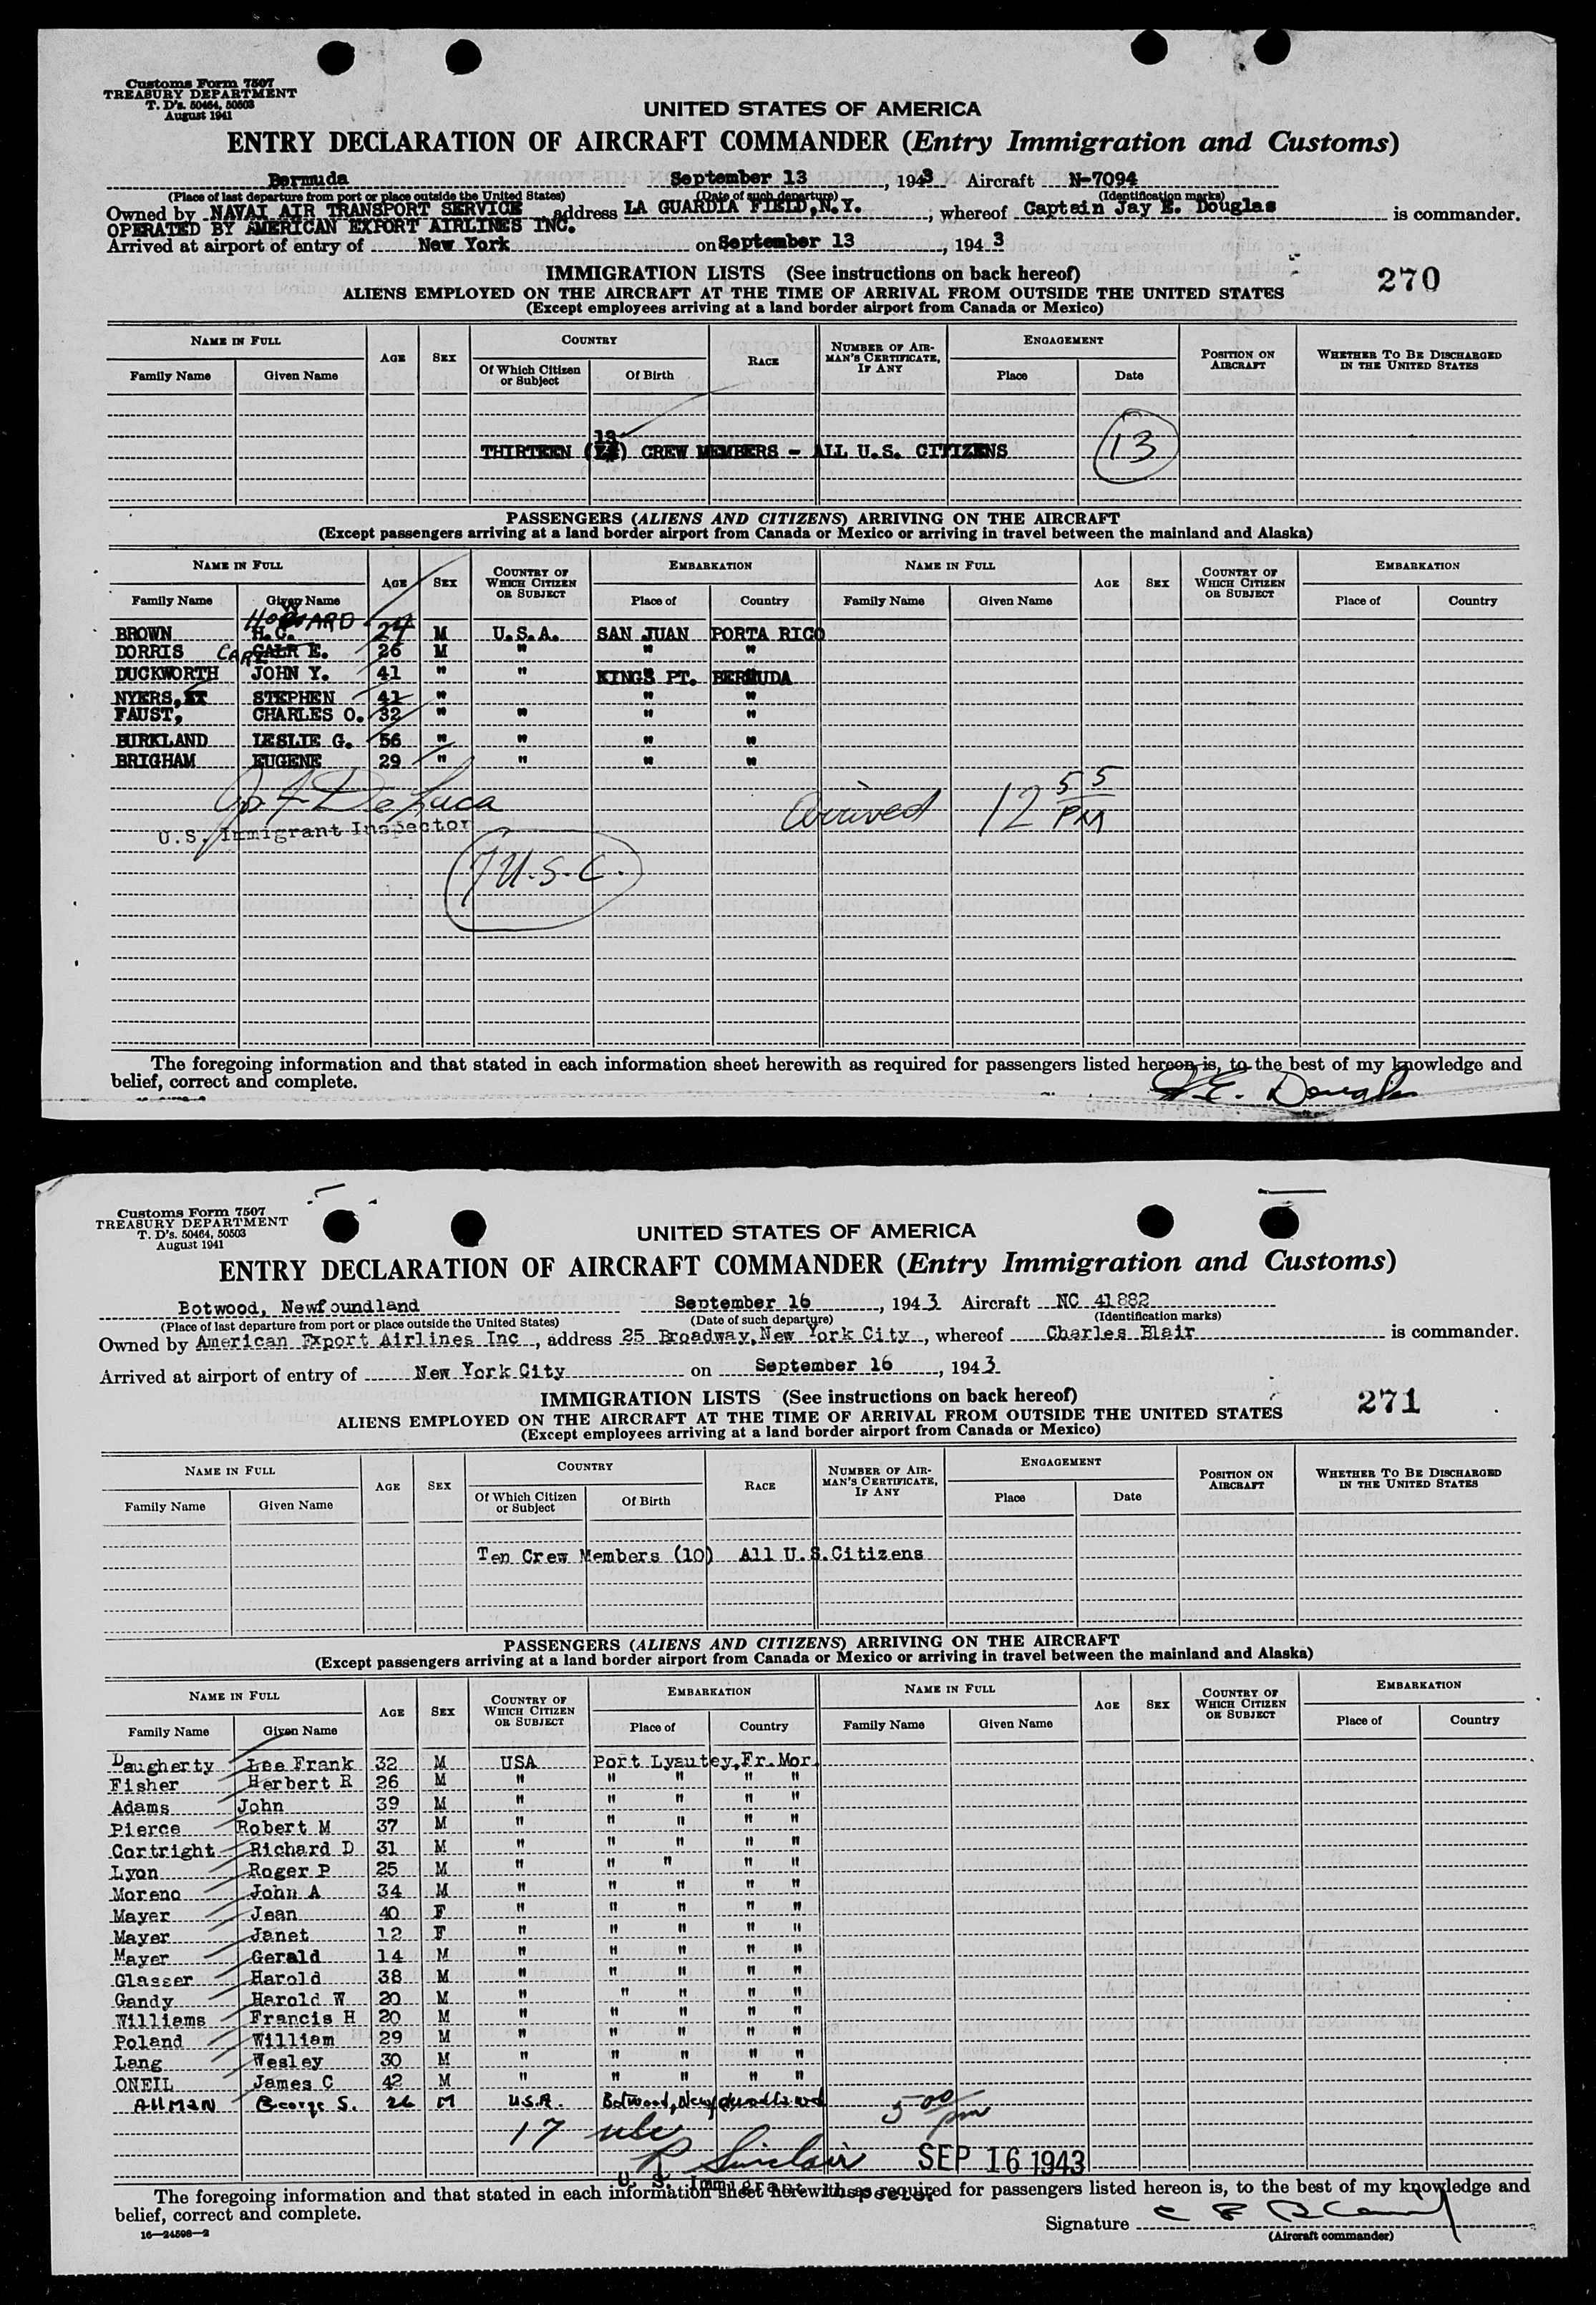 Customs Form 7507
TREASURY DEPARTMENT
T. D's. 50464, 50503
August 1941
UNITED STATES OF AMERICA
ENTRY DECLARATION OF AIRCRAFT COMMANDER (Entry Immigration and Customs)
Bermuda September 13, 1943 Aircraft N-7094
(Place of last departure from port or place outside the United States) (Date of such departure) (Identification marks)
Owned by NAVAL AIR TRANSPORT SERVICE address LA GUARDIA FIELD, N.Y., whereof Captain Jay E. Douglas is commander.
OPERATED BY AMERICAN EXPORT AIRLINES INC.
Arrived at airport of entry of New York on September 13, 1943
IMMIGRATION LISTS (See instructions on back hereof)
270
ALIENS EMPLOYED ON THE AIRCRAFT AT THE TIME OF ARRIVAL FROM OUTSIDE THE UNITED STATES
(Except employees arriving at a land border airport from Canada or Mexico)
NAME IN FULL AGE SEX COUNTRY RACE NUMBER OF AIRMAN'S CERTIFICATE, IF ANY ENGAGEMENT POSITION ON AIRCRAFT WHETHER TO BE DISCHARGED IN THE UNITED STATES
Family Name Given Name Of Which Citizen or Subject Of Birth Place Date
13
THIRTEEN ( ) CREW MEMBERS - ALL U.S. CITIZENS 13
PASSENGERS (ALIENS AND CITIZENS) ARRIVING ON THE AIRCRAFT
(Except passengers arriving at a land border airport from Canada or Mexico or arriving in travel between the mainland and Alaska)
NAME IN FULL AGE SEX COUNTRY OF WHICH CITIZEN OR SUBJECT EMBARKATION NAME IN FULL AGE SEX COUNTRY OF WHICH CITIZEN OR SUBJECT EMBARKATION
Family Name Given Name Place of Country Family Name Given Name Place of Country
HOWARD
BROWN H.C. 24 M U.S.A. SAN JUAN PORTA RICO
DORRIS CARL E. 26 M " " "
DUCKWORTH JOHN Y. 41 " " KINGS PT. BERMUDA
NYERS, STEPHEN 41 " " "
FAUST, CHARLES O. 32 " " " "
BURKLAND LESLIE G. 56 " " " "
BRIGHAM EUGENE 29 " " " "
Jos F DeLuca
U.S. Immigrant Inspector
Arrived 12 55 PM
7 U.S.C.
The foregoing information and that stated in each information sheet herewith as required for passengers listed hereon is, to the best of my knowledge and
belief, correct and complete.
J.E. Douglas
Customs Form 7507
TREASURY DEPARTMENT
T. D's. 50464, 50503
August 1941
UNITED STATES OF AMERICA
ENTRY DECLARATION OF AIRCRAFT COMMANDER (Entry Immigration and Customs)
Botwood, Newfoundland September 16, 1943 Aircraft NC 41882
(Place of last departure from port or place outside the United States) (Date of such departure) (Identification marks)
Owned by American Export Airlines Inc, address 25 Broadway, New York City, whereof Charles Blair is commander.
Arrived at airport of entry of New York City on September 16, 1943
IMMIGRATION LISTS (See instructions on back hereof)
271
ALIENS EMPLOYED ON THE AIRCRAFT AT THE TIME OF ARRIVAL FROM OUTSIDE THE UNITED STATES
(Except employees arriving at a land border airport from Canada or Mexico)
NAME IN FULL AGE SEX COUNTRY RACE NUMBER OF AIRMAN'S CERTIFICATE, IF ANY ENGAGEMENT POSITION ON AIRCRAFT WHETHER TO BE DISCHARGED IN THE UNITED STATES
Family Name Given Name Of Which Citizen or Subject Of Birth Place Date
Ten Crew Members (10) All U.S.Citizens
PASSENGERS (ALIENS AND CITIZENS) ARRIVING ON THE AIRCRAFT
(Except passengers arriving at a land border airport from Canada or Mexico or arriving in travel between the mainland and Alaska)
NAME IN FULL AGE SEX COUNTRY OF WHICH CITIZEN OR SUBJECT EMBARKATION NAME IN FULL AGE SEX COUNTRY OF WHICH CITIZEN OR SUBJECT EMBARKATION
Family Name Given Name Place of Country Family Name Given Name Place of Country
Daugherty Lee Frank 32 M USA Port Lyautey, Fr. Mor.
Fisher Herbert R 26 M " " " " "
Adams John 39 M " " " " "
Pierce Robert M 37 M " " " " "
Cortright Richard D 31 M " " " " "
Lyon Roger P 25 M " " " " "
Moreno John A 34 M " " " " "
Mayer Jean 40 F " " " " "
Mayer Janet 12 F " " " " "
Mayer Gerald 14 M " " " " "
Glasser Harold 38 M " " " " "
Gandy Harold W 20 M " " " " "
Williams Francis H 20 M " " " " "
Poland William 29 M " " " " "
Lang Wesley 30 M " " " " "
ONEIL James C 42 M " " " " "
Allman George S. 26 M U.S.A. Botwood, Newfoundland
5 00 pm
17 usc
R Sinclair SEP 16 1943
U. S. Immigrant Inspector
The foregoing information and that stated in each information sheet herewith as required for passengers listed hereon is, to the best of my knowledge and
belief, correct and complete.
16—24598-2
Signature C F Blair
(Aircraft commander)